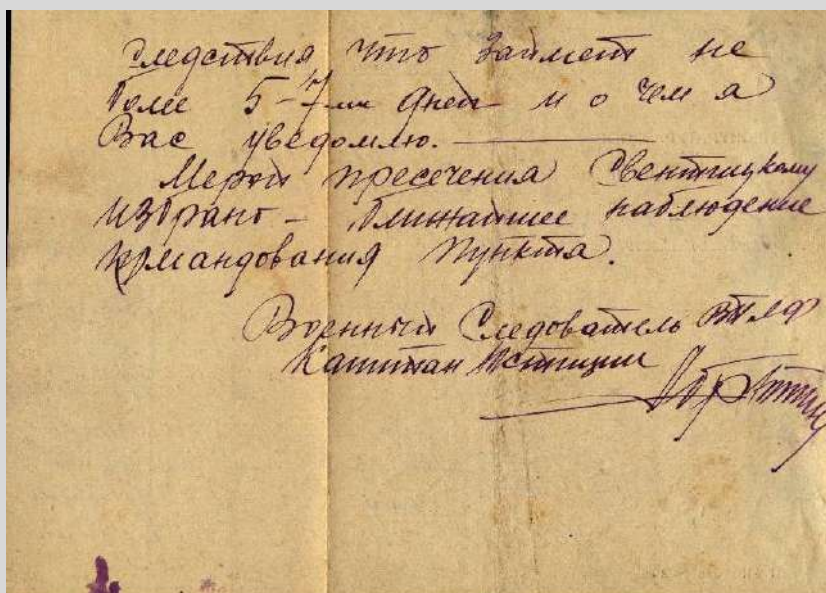 следствия что займет не
более 5-7ми дней и о чем я
Вас уведомлю.
Мерой пресечения Свентицкому
избрано - ближайшее наблюдение
командования пункта.
Военный Следователь
Капитан Юстиции